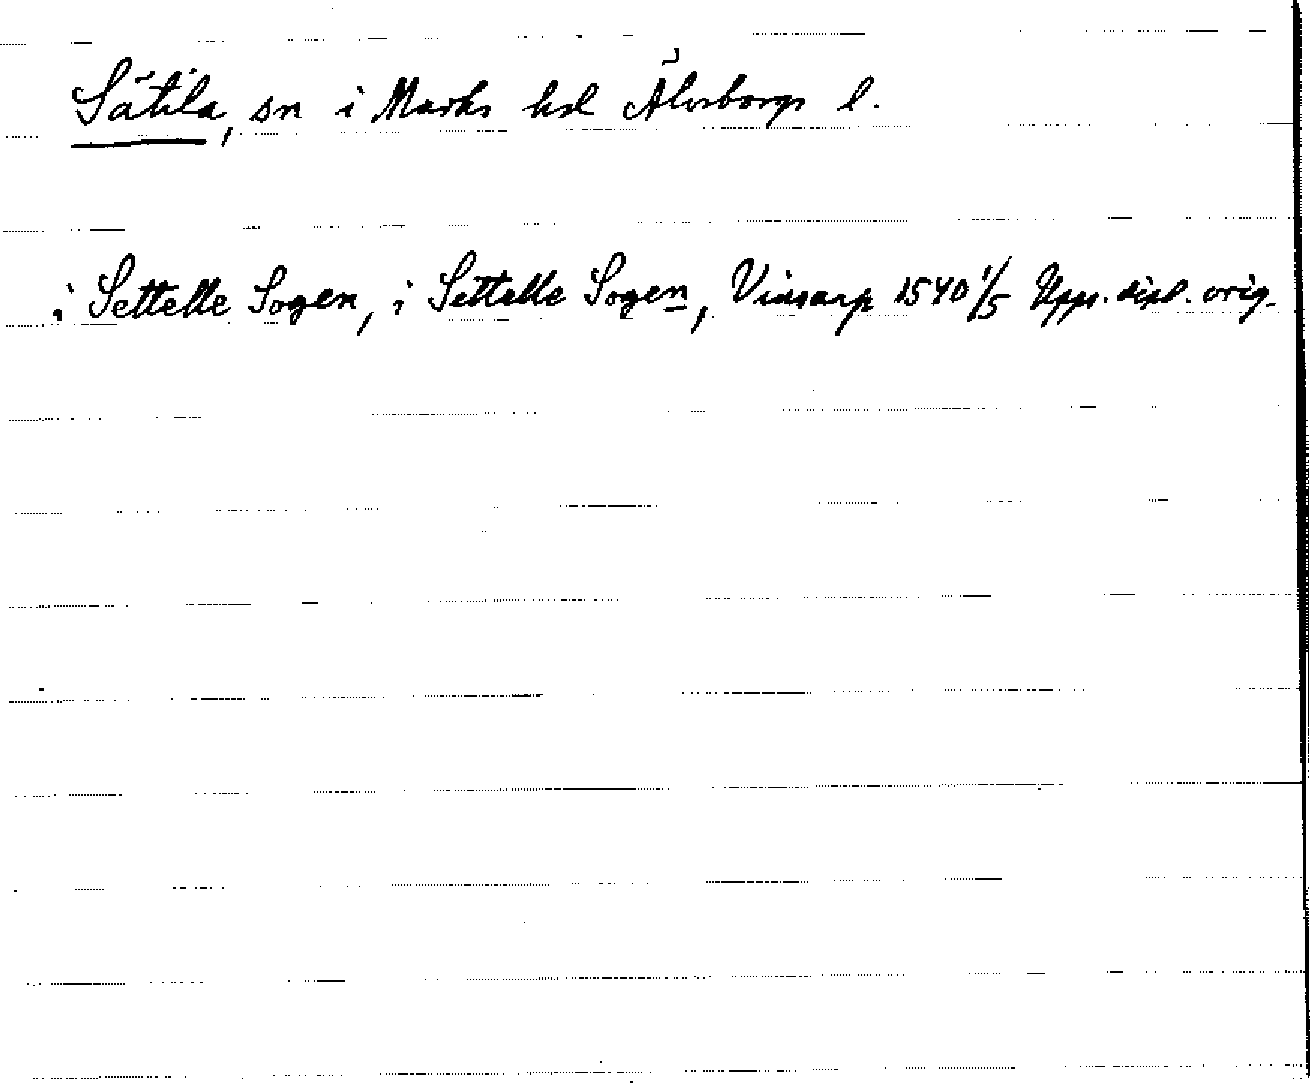 Sätila, sn i Marks hsd Älvsborgs l.
i Settelle Sogen, i Settelle Sogen, Vinsarp 1540 1/5 Upps. dipl. orig.